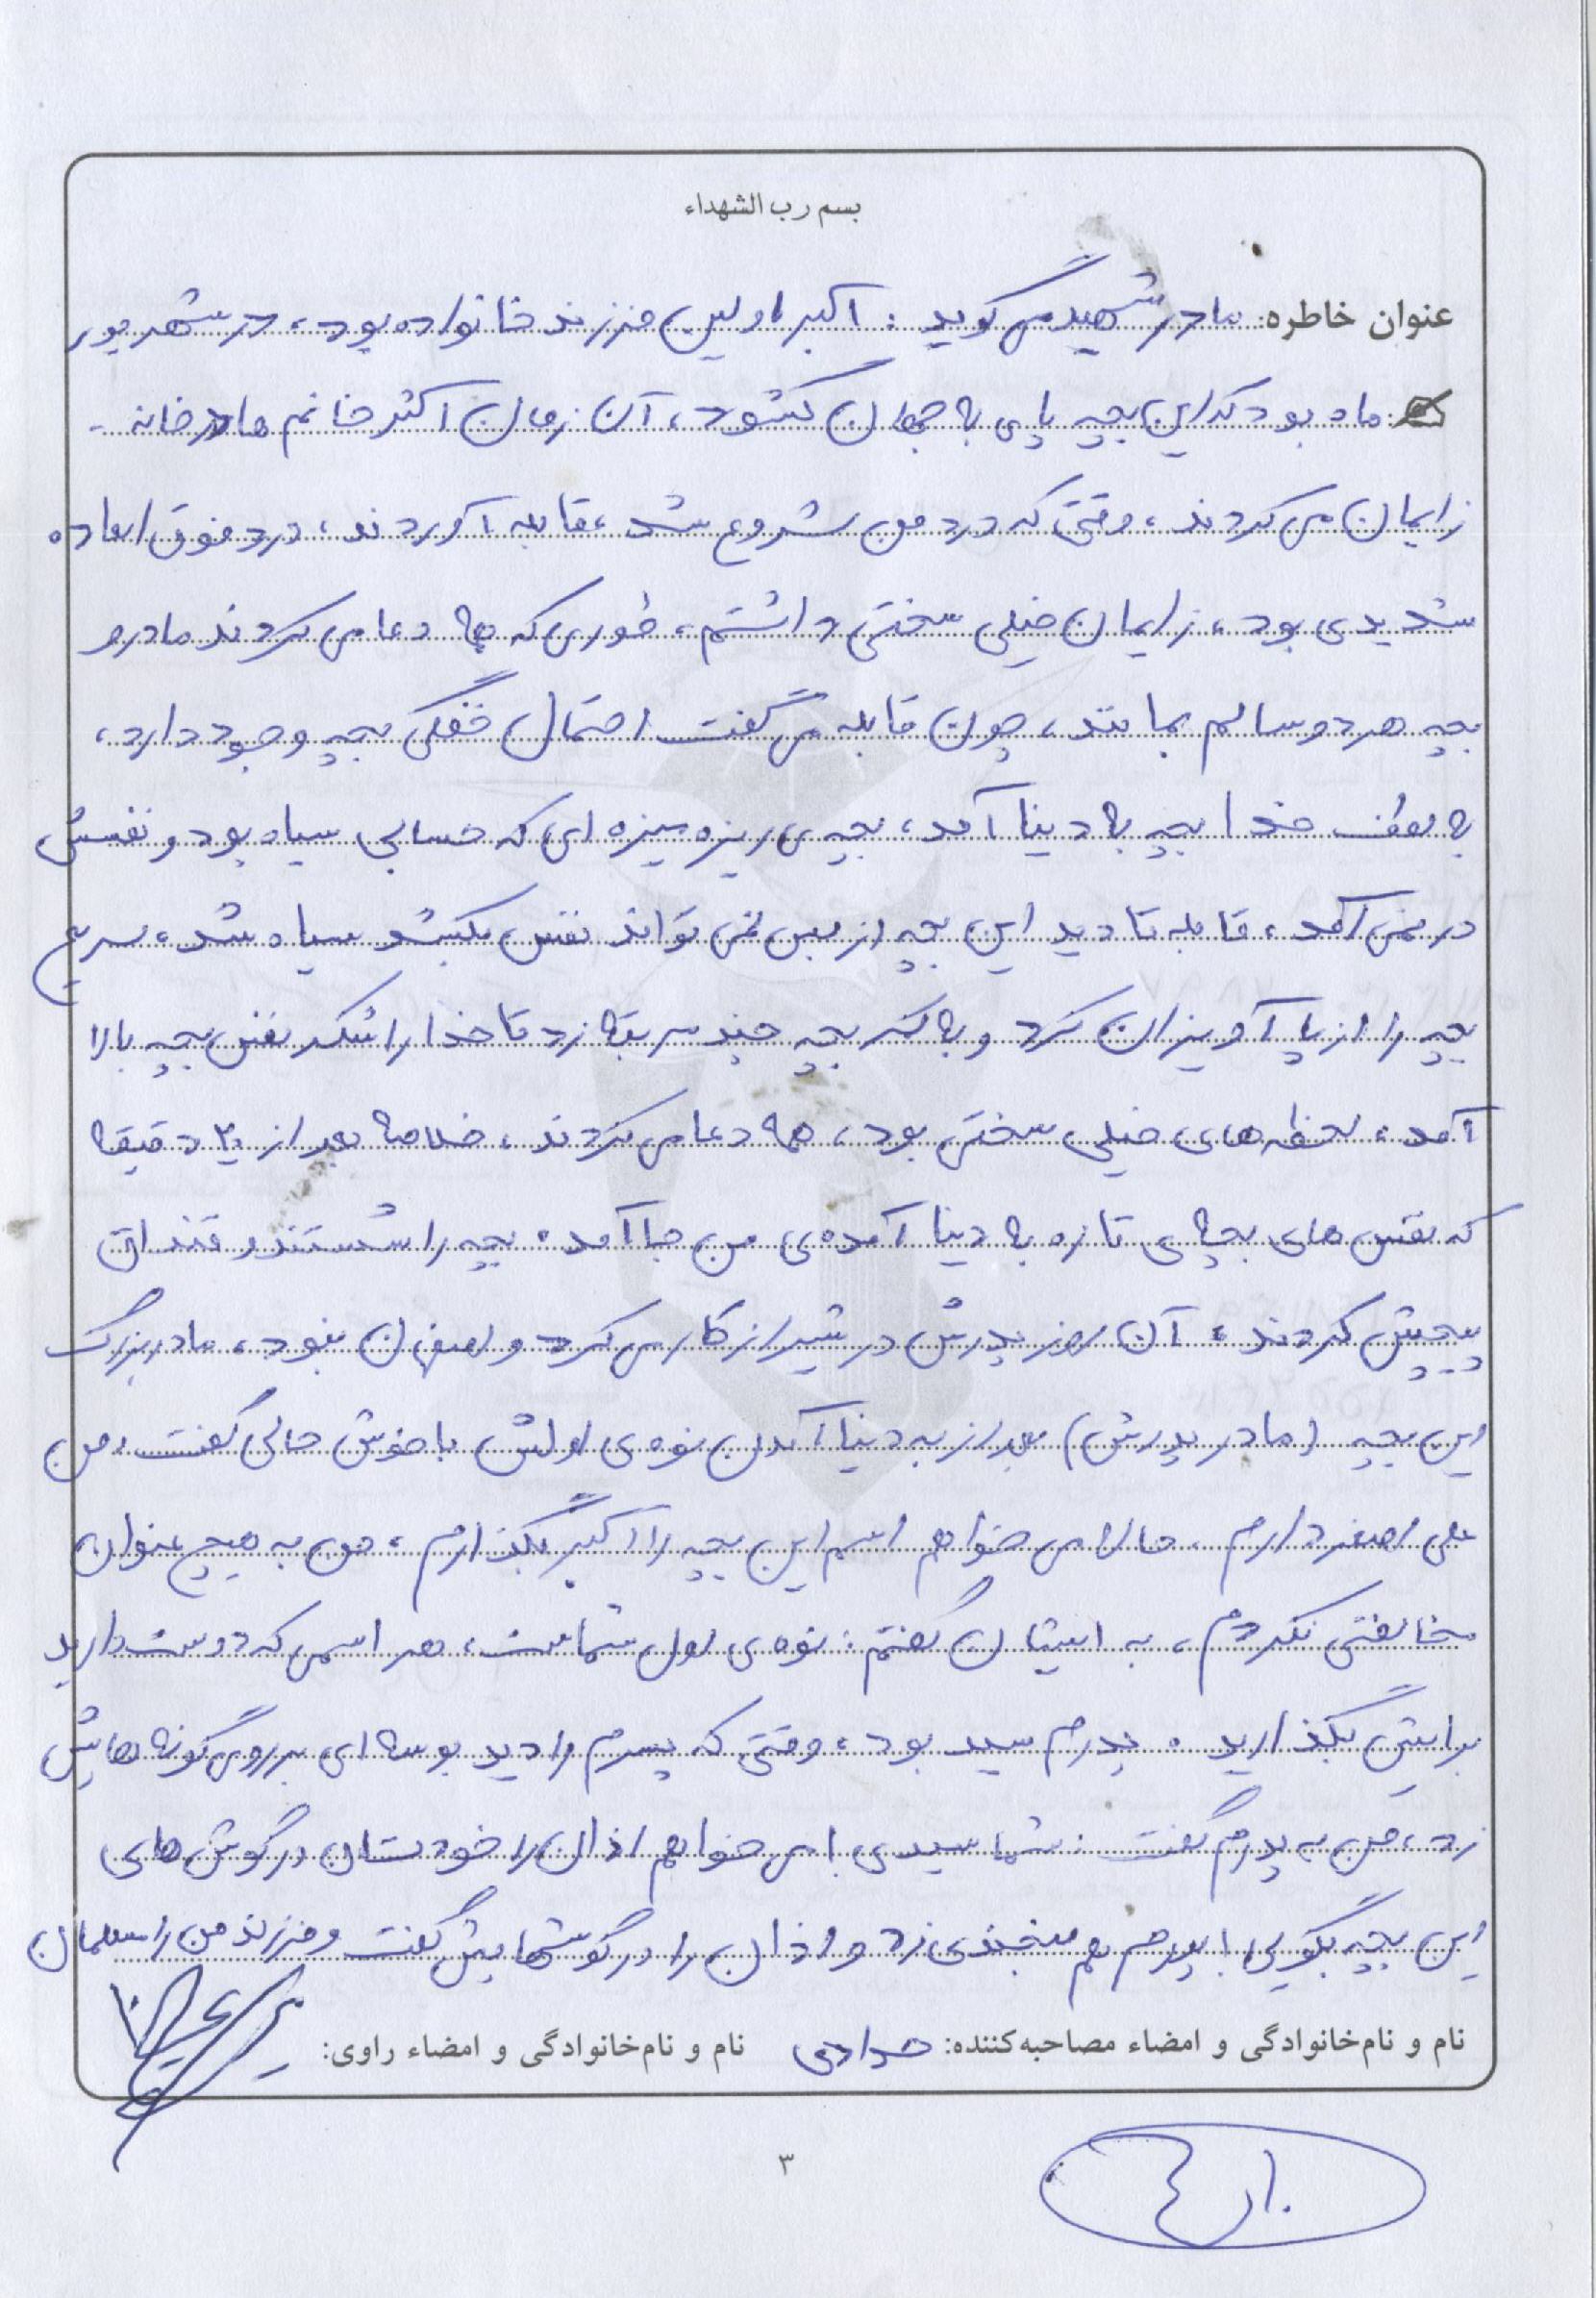 بسم رب الشهداء
عنوان خاطره: مادر شهید می گوید: اکبر اولین فرزند خانواده بود، در شهریور
ماه بود که این بچه پای به جهان گشود، آن زمان اکثر خانم ها در خانه
زایمان می کردند، وقتی که درد من شروع شد، قابله آوردند، درد فوق العاده
شدیدی بود، زایمان خیلی سختی داشتم، طوری که همه دعا می کردند مادر و
بچه هر دو سالم بمانند، چون قابله می گفت احتمال خفگی بچه وجود دارد،
به لطف خدا بچه به دنیا آمد، بچه ی ریزه میزه ای که حسابی سیاه بود و نفسش
در نمی آمد، قابله تا دید این بچه از بس نمی تواند نفس بکشد سیاه شد، سریع
بچه را از پا آویزان کرد و به کمر بچه چند سر بقه زد تا خدا را شکر نفس بچه بالا
آمد، لحظه های خیلی سختی بود، همه دعا می کردند، خلاصه بعد از ۲۰ دقیقه
که نفس های بچه ی تازه به دنیا آمده ی من جا آمد، بچه را شستند و قنداق
پیچش کردند، آن روز پدرش در شیراز کار می کرد و اصفهان نبود، مادربزرگ
این بچه (مادر پدرش) بعد از به دنیا آمدن نوه ی اولش با خوش حالی گفت: من
علی اصغر دارم، حالا می خواهم اسم این بچه را اکبر بگذارم، من به هیچ عنوان
مخالفتی نکردم، به ایشان گفتم: نوه ی اول شماست، هر اسمی که دوست دارید
برایش بگذارید. پدرم سید بود، وقتی که پسرم را دید بوسه ای بر روی گونه هایش
زد، من به پدرم گفت: شما سیدی! می خواهم اذان را خودتان در گوش های
این بچه بگویی! پدرم هم لبخندی زد و اذان را در گوشهایش گفت و فرزند من را مسلمان
نام و نام‌خانوادگی و امضاء مصاحبه‌کننده: نام و نام‌خانوادگی و امضاء راوی:
۳